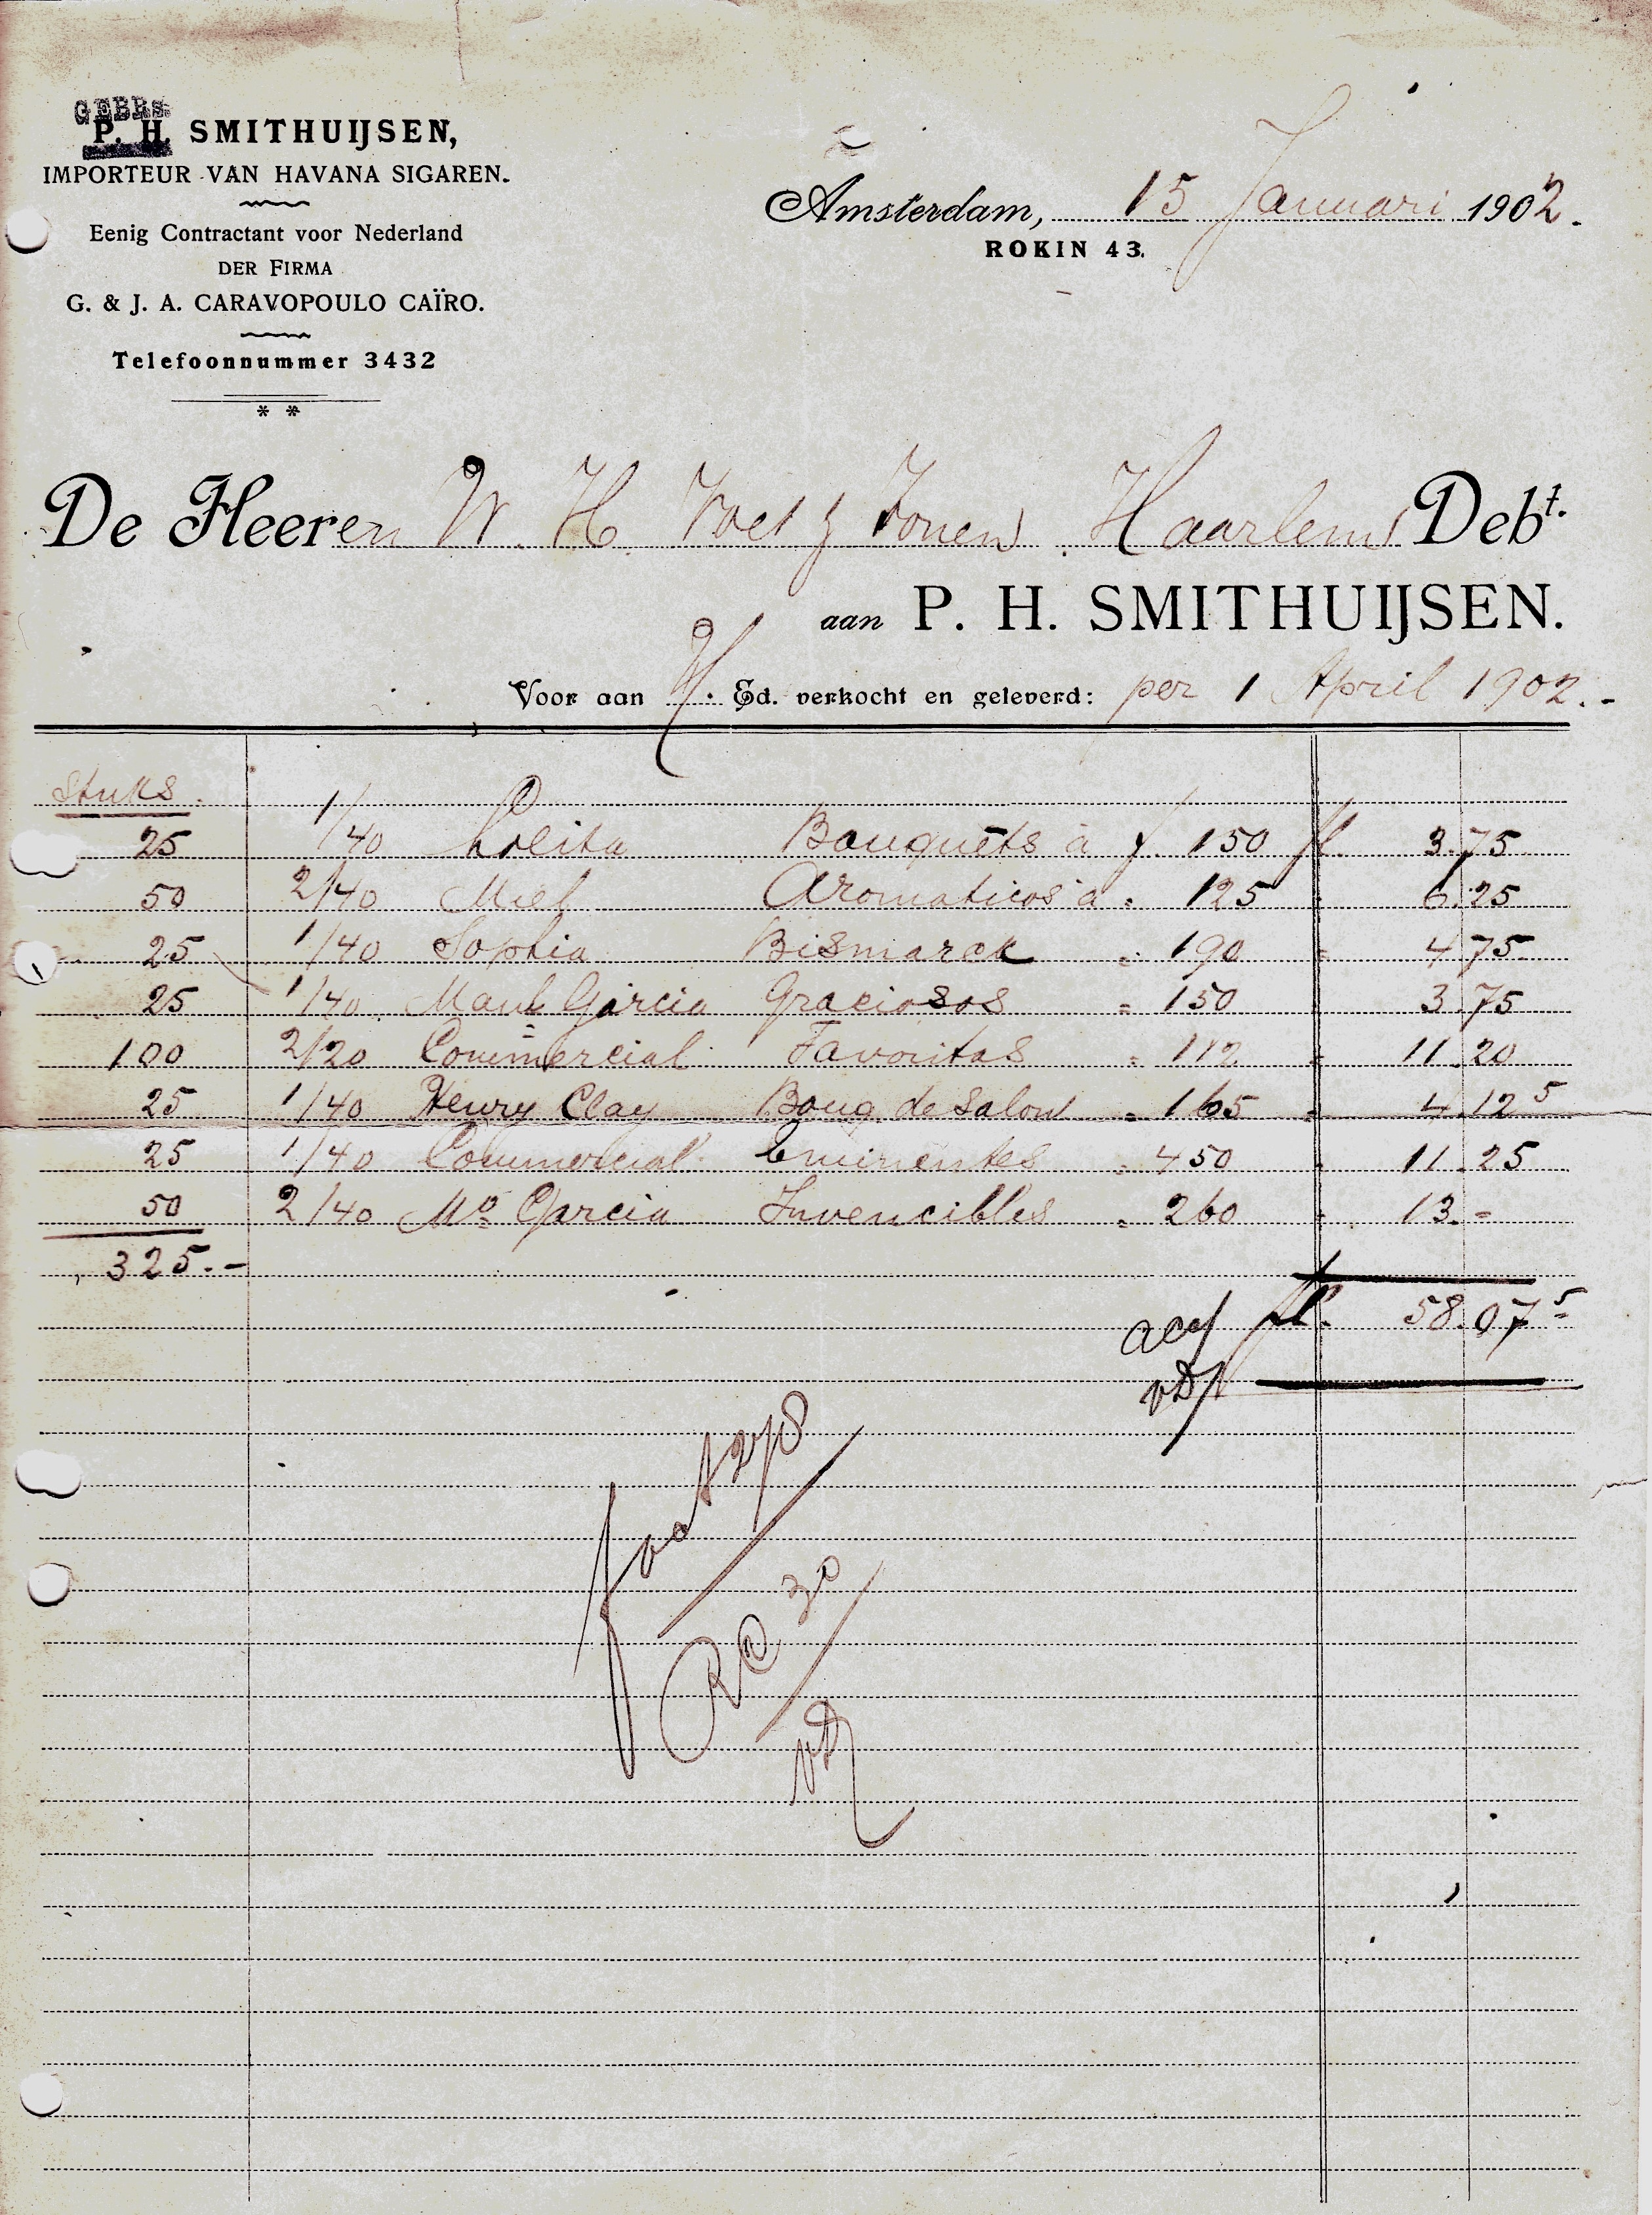 GEBRS.
P. H. SMITHUIJSEN,
IMPORTEUR VAN HAVANA SIGAREN.
Eenig Contractant voor Nederland
DER FIRMA
G. & J. A. CARAVOPOULO CAÏRO.
Telefoonnummer 3432
* *
Amsterdam, 15 Januari 1902.
ROKIN 43.
De Heeren W. H. Voet & Zonen Haarlem Debt.
aan P. H. SMITHUIJSEN.
Voor aan Ed. verkocht en geleverd: per 1 April 1902.-
Stuks.
25 1/40 Lolita Bouquets à f. 150 fl. 3.75
50 2/40 Miel Aromaticos à " 125 " 6.25
25 1/40 Sophia Bismarck " 190 " 4.75
25 1/40 Manl Garcia Graciosos " 150 " 3.75
100 2/20 Commercial Favoritas " 112 " 11.20
25 1/40 Henry Clay Bouq. de Salon " 165 " 4.12 5
25 1/40 Commercial Eminentes " 450 " 11.25
50 2/40 Mo Garcia Invencibles " 260 " 13.-
325.-
fl. 58.07 5
RC 30